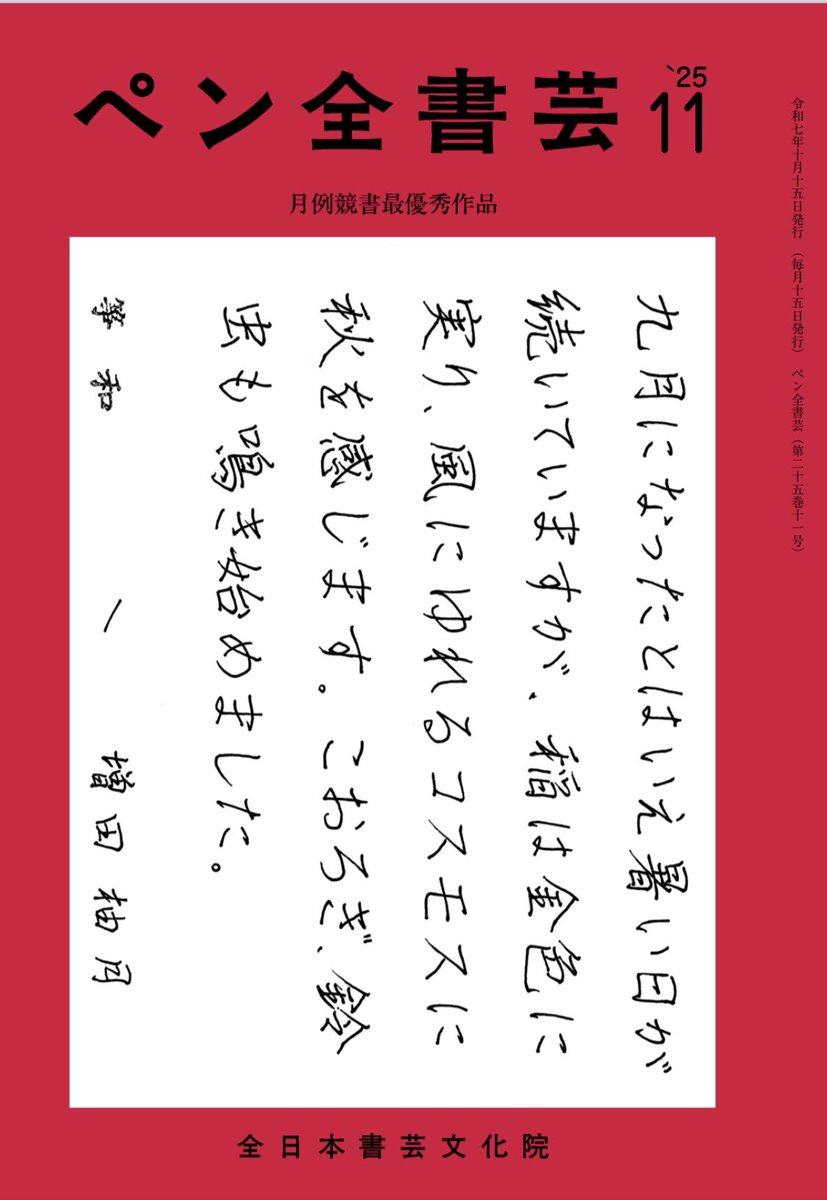 ペン全書芸 '25 11
月例競書最優秀作品
令和七年十月十五日発行 (毎月十五日発行) ペン全書芸 (第二十五巻十一号)
九月になったとはいえ暑い日が
続いていますが、稲は金色に
実り、風にゆれるコスモスに
秋を感じます。こおろぎ、鈴
虫も鳴き始めました。
筆和 一 増田柚月
全日本書芸文化院